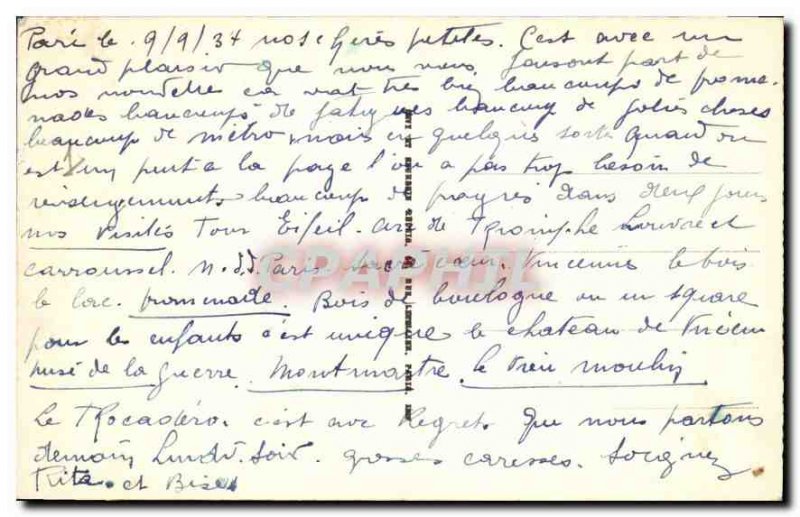 Pari le. 9/9/34 nos chères petites. C'est avec un
grand plaisir que nous vous faisont part de
nos nouvelle ca vat tres bien beaucoups de prome
nades beaucoups de fatigues beaucoup de jolies choses
beaucoup de métro, mais en quelques sorte quand on
est un peut a la page l'on a pas trop besoin de
renseignements beaucoup de progres dans deux jours
nos visites Tour Eifeil. arc de Triomphe Louvre et
carroussel. N.d.d. Paris. sacré coeur. Vincennes le bois
le lac. promenade. Bois de boulogne ou un square
pour les enfants c'est unique le chateau de Vincen
musé de la guerre. Montmartre. le vieu moulin
Le Trocadéro. c'est avec Regret que nous partons
demain Lundi. soir. grosses caresses. soignez
Rita. et Bises
CPAPHIL